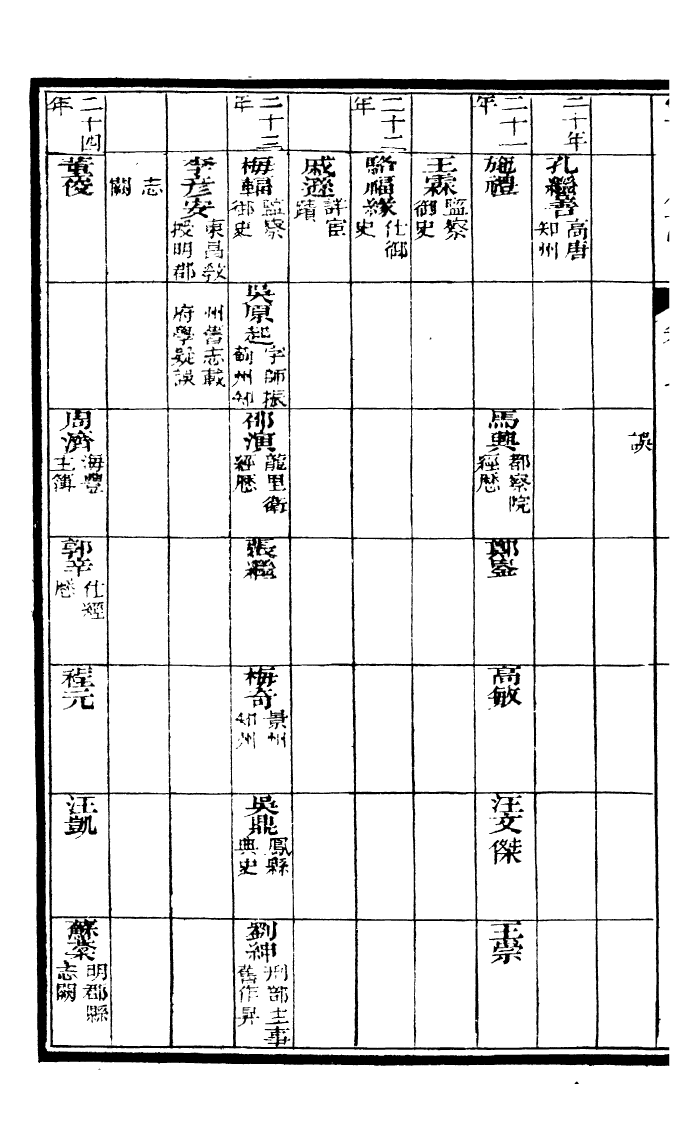 誤
二十年
孔繼善高唐知州
二十一年
施禮
馬興都察院經歷
鄭崟
高敏
汪文傑
王崇
王霖監察御史
二十二年
駱福緣仕御史
戚遜詳宦蹟
二十三年
梅輻監察御史
吳原起字師振薊州知
邵演龍里衛經歷
張繼
梅奇景州知州
吳鼎鳳縣典史
劉紳刑部主事舊作昇
李彥安東昌教授明郡
州舊志載府學疑誤
志闕
二十四年
董俊
周濟海豐主簿
郭辛仕經歷
程元
汪凱
蘇棠明郡縣志闕